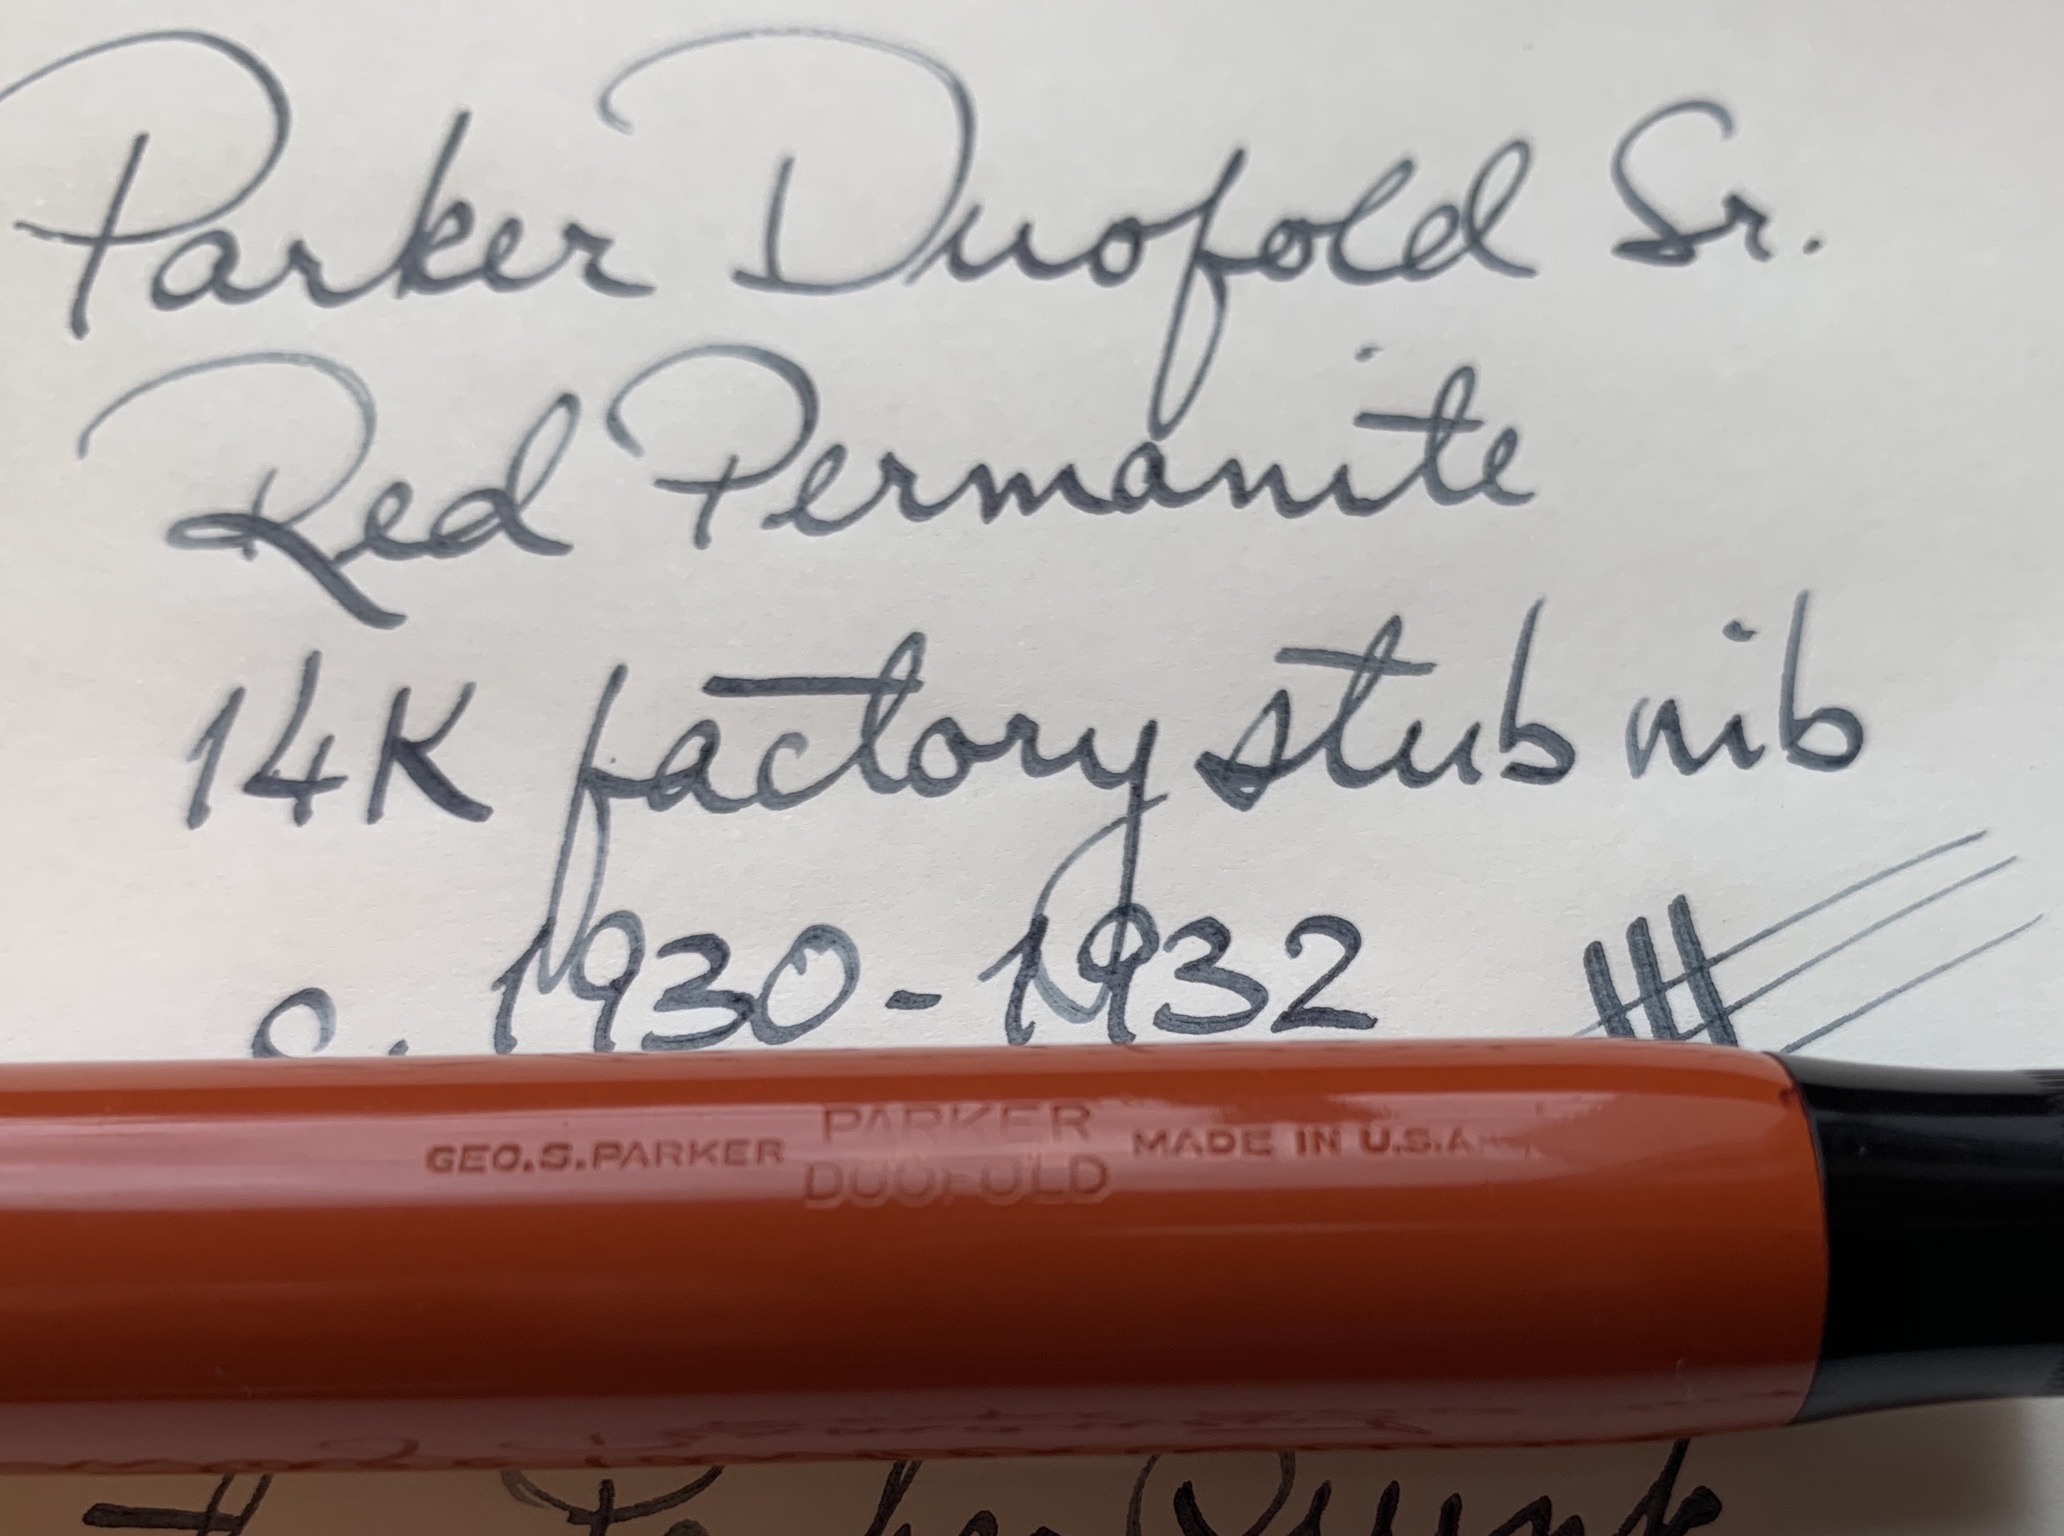 Parker Duofold Sr.
Red Permanite
14K factory stub nib
c. 1930-1932
GEO.S.PARKER PARKER DUOFOLD MADE IN U.S.A.
Parker Quink